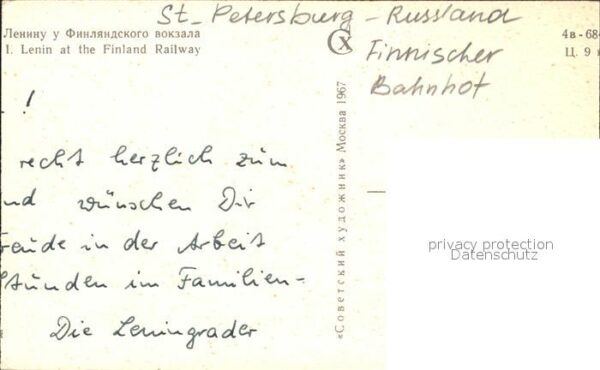 St. Petersburg - Russland
Finnischer
Bahnhof
Ленину у Финляндского вокзала
I. Lenin at the Finland Railway
4в-68
Ц. 9
!
recht herzlich zum
nd wünschen Dir
Freude in der Arbeit
Stunden im Familien-
Die Leningrader
«Советский художник» Москва 1967
privacy protection
Datenschutz